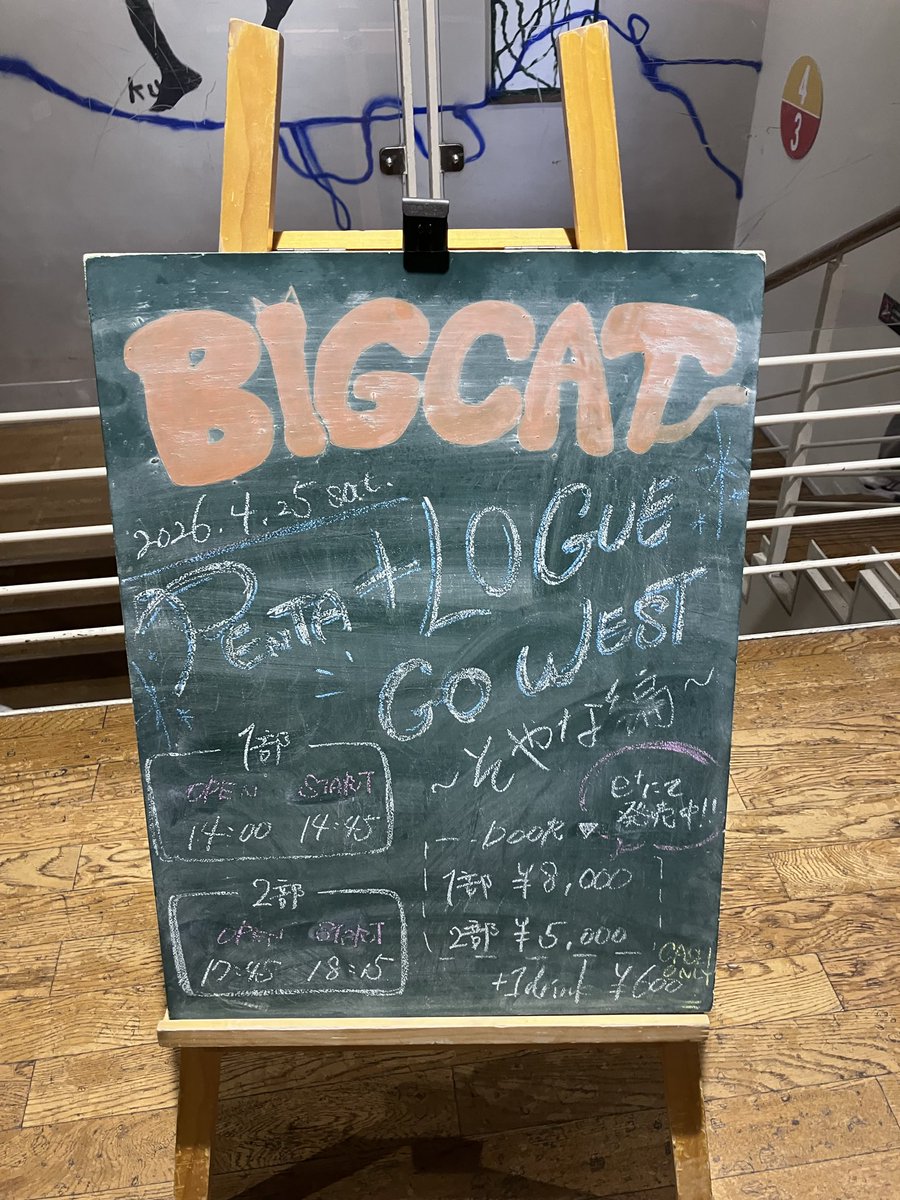 KU
4
3
BIGCAT
2026.4.25 sat.
PENTA+LOGUE
GO WEST
~そやな編~
1部
OPEN START
14:00 14:45
2部
OPEN START
17:45 18:15
e+にて
発売中!!
door ▼
1部 ¥8,000
2部 ¥5,000
+1drink ¥600
CASH
ONLY